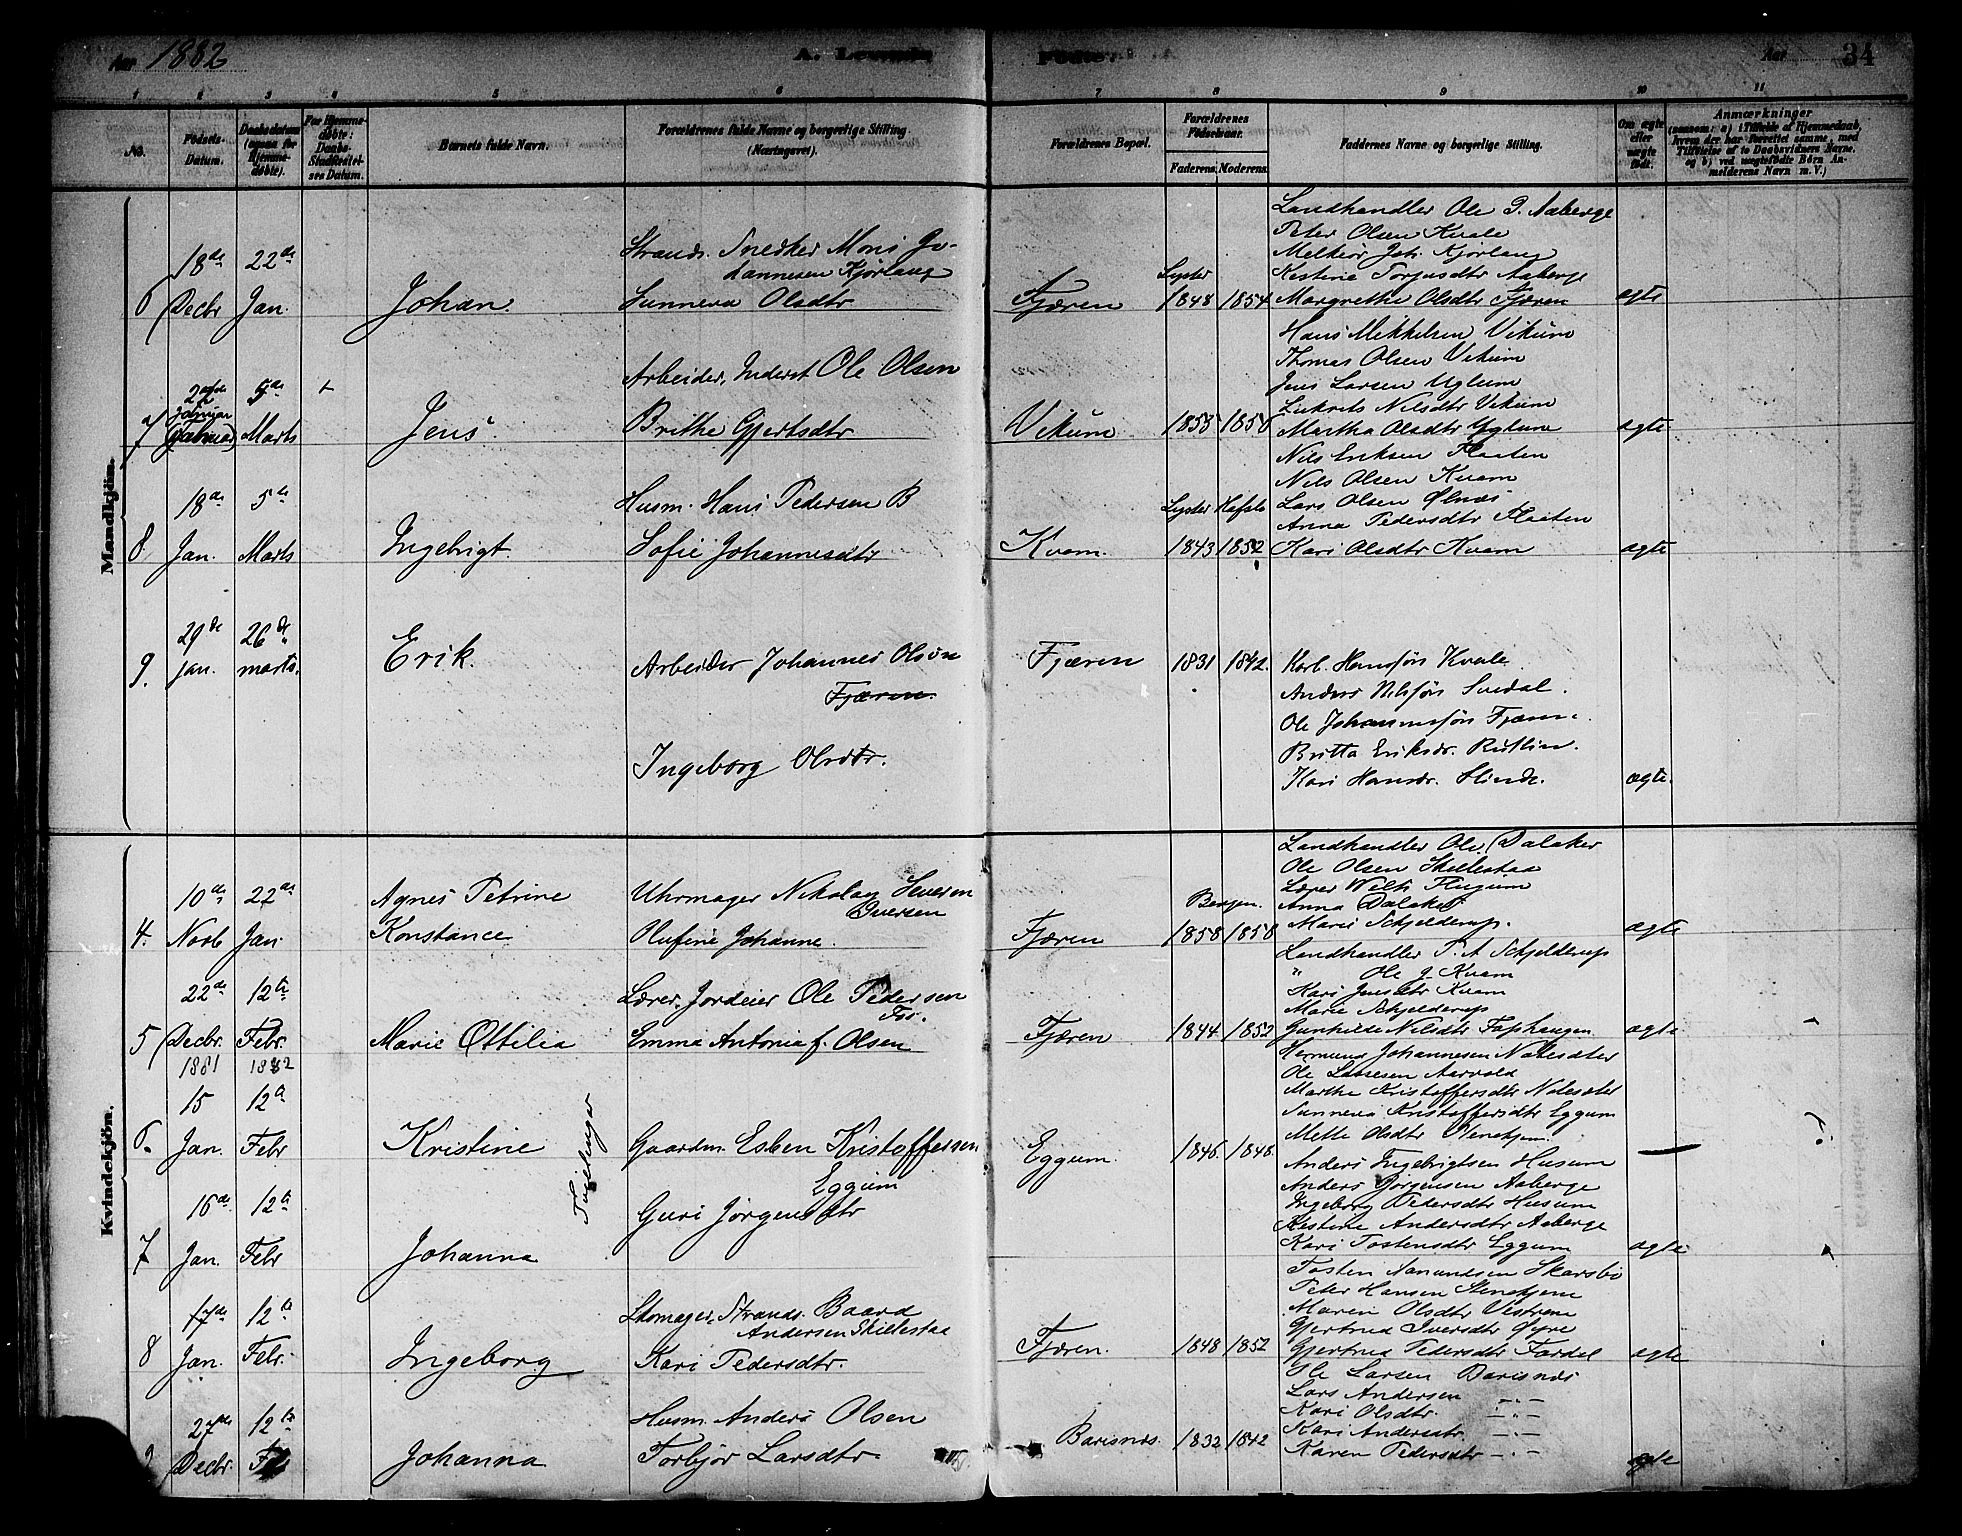 Aar 1882
A. Levende
Fødte.
Aar
34
1 2 3 4 5 6 7 8 9 10 11
No.
Fødsels-
Datum.
Daabsdatum
(ogsaa for
Hjemme-
døbte).
For Hjemme-
døbte:
Daabs-
Stadfæstel-
ses Datum.
Barnets fulde Navn.
Forældrenes fulde Navne og borgerlige Stilling
(Næringsvei).
Forældrenes Bopæl.
Forældrenes
Fødselsaar.
Faderens. Moderens.
Faddernes Navne og borgerlige Stilling.
Om ægte
eller
uægte
født.
Anmærkninger
(saasom: a) i Tilfælde af Hjemmedaab,
hvem der har forrettet samme, med
Tilføielse af to Daabsvidners Navne,
og b) ved uægtefødte Børn An-
melderens Navn m. V.)
Mandkjön.
6
18de
Decbr
22de
Jan.
Johan.
Strands. Snedker Mons Jo-
hannesen Kjørlaug
Sunneva Olsdtr
Fjæren
Lyster
1848 1854
Landhandler Ole P. Aaberge
Peter Olsen Kvale
Melkior Joh. Kjørlaug
Kestina Torjusdtr Aaberge
Margrethe Olsdtr Fjæren
ægte
7
22de
Januar
5de
Marts
+
Jens
Arbeider, Inderst Ole Olsen
Brithe Gjertsdtr
Vikum
1855 1850
Hans Mikkelsen Vikum
Thomas Olsen Vikum
Jens Larsen Uglum
Nilsdtr Vikum
Martha Olsdtr Uglum
ægte
8
18de
Jan.
5te
Marts
Ingebrigt
Husm. Hans Pedersen B
Sofie Johannesdtr
Kvam.
Lyster Hafslo
1843 1852
Nils Eriksen Flaaten
Nils Olsen Kvam
Lars Olsen Ølnæs
Anna Pedersdtr Flaaten
Kari Olsdtr Kvam
ægte
9.
29de
jan.
26de
marts.
Erik.
Arbeider Johannes Olsøn
Fjæren.
Ingeborg Olsdtr.
Fjæren
1831 1842.
Karl Hansføn Kvale
Anders Nilsføn Suedal.
Ole Johannesføn Fjæren.
Britta Eriksdr. Rutlin.
Kari Hansdr. Slinde.
ægte.
Kvindekjön.
4.
10de
Novb
22de
Jan.
Agnes Petrine
Konstance
Uhrmager Nikolay Severin
Iversen
Olufine Johanne.
Fjæren
Bergen.
1858 1850
Landhandler Ole Dalaker
Ole Olsen Skillestaa
Lærer Flugum
Anna Dalaker
Marie Schjelderup.
ægte
5
22de
Decbr.
1881
12te
Febr.
1882
Marie Ottilia
Lærer, Jordeier Ole Pedersen
Fos.
Emma Antonia f. Olsen
Fjæren
1844. 1852
Landhandler P. A Schjelderup
" Ole J. Kvam
Kari Jensdtr Kvam
Marie Schjelderup
Gunhilde Nilsdtr Taphaugen.
ægte
6.
15
Jan.
12te
Febr
Kristine
Tvillinger
Gaardm. Esben Kristoffersen
Eggum
Guri Jørgensdtr
Eggum.
1846. 1848.
Hermund Johannesen Nalesdter
Ole Larsesen Aarvold
Marthe Kristoffersdtr Nalesdter
Sunneva Kristoffersdtr Eggum
Mette Olsdtr Stenehjem.
7
16de
Jan.
12te
Febr
Johanna
Anders Ingebrigtsen Husum
Anders Jørgensen Aaberge
Ingeborg Pedersdtr Husum
Kestine Andersdtr Aaberge
Kari Tostensdtr Eggum
ægte
8
17de
Jan.
12te
Febr.
Ingeborg
Skomager, Strands. Baard
Andersen Skillestaa
Kari Pedersdtr.
Fjæren.
1848 1852
Tosten Aamundsen Skarsbø
Peter Hansen Stenehjem
Maren Olsdtr Vestrem
Gjertrud Iversdtr Øyre
Gjertrud Pedersdtr Fardal
ægte
9
27de
Decbr.
12te
Johanna
Husm. Anders Olsen
Torbjør Larsdtr.
Barsnes.
1832 1842
Ole Larsen Barsnæs
Lars Andersen -"-
Kari Olsdtr. -"-
Kari Andersdtr. -"-
Karen Pedersdtr -"-
ægte